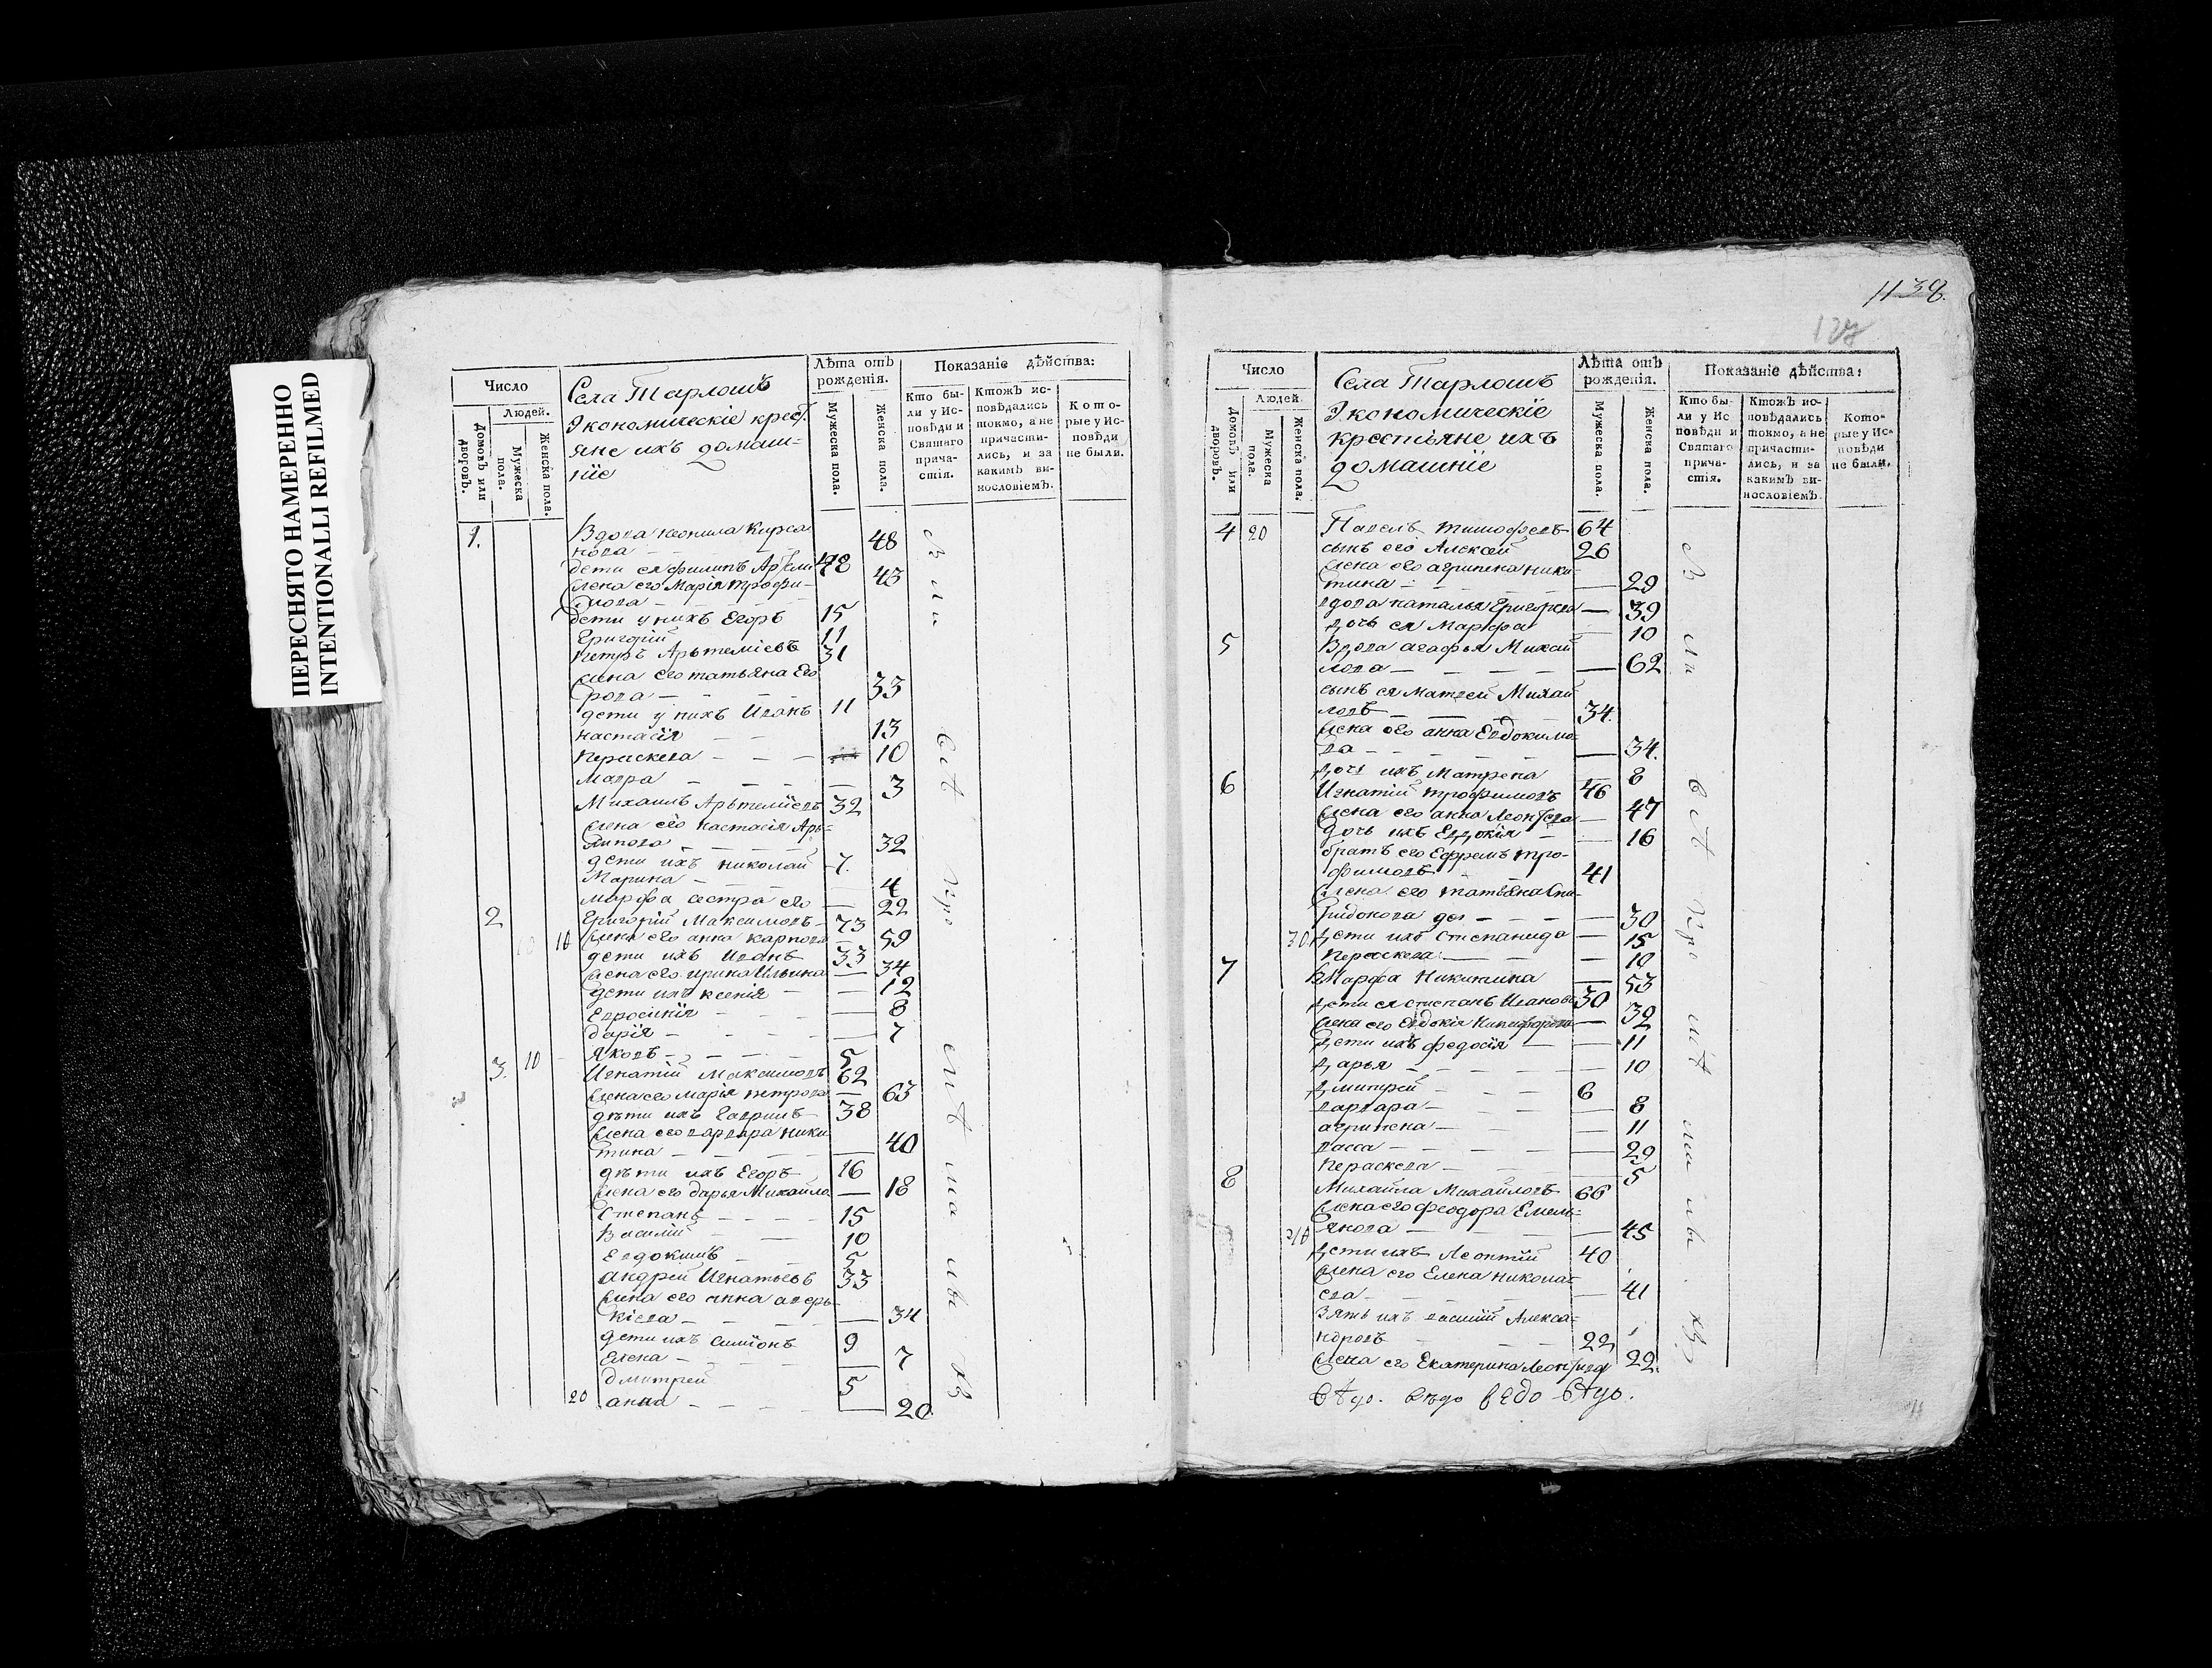 ПЕРЕСНЯТО НАМЕРЕННО
INTENTIONALLI REFILMED
Число
Людей.
Домовъ или дворовъ.
Мужеска пола.
Женска пола.
Села Тарлошъ
Экономическіе крест.
яне ихъ домаш=
ніе
Лѣта отъ рожденія.
Мужеска пола.
Женска пола.
Показаніе дѣйства:
Кто бы-
ли у Ис-
повѣди и
Святаго
прича-
стія.
Ктожъ ис-
повѣдались
токмо, а не
причасти-
лись, и за
какимъ ви-
нословіемъ.
Кото-
рые у Ис-
повѣди
не были.
1. Вдова неонила Кирса
нова 48
дети ея филипъ 48
жена его Марія трофи- 43
мова
дети у нихъ Егоръ 15
Григорій 11
петръ Артемиевъ 31
жена его татьяна Его
рова 33
дети у нихъ Иванъ 11
настасія 13
перасковa 10
Мавра 3
Михаилъ Артемиевъ 32
жена его настасія
32
дети ихъ николай 7.
Марина 4
марфа сестра его 22
2 Григорій Максимовъ 73
10 жена его анна карпова 59
дети ихъ Иванъ 33
жена его ирина Ильина 34
дети ихъ ксенія 12
Евросинія 8
дарія 7
10 яковъ 5
3. Игнатий Максимовъ 62
жена его марія петрова 63
дѣти ихъ Гаврилъ 38
жена его варвара ники
тина 40
дѣти ихъ Егоръ 16
жена его дарья Михаила 18
Степанъ 15
Василий 10
Евдокимъ 5
андрей Игнатьевъ 33
жена его анна аверь-
кіева 34
дети ихъ симіонъ 9
Елена 7
дмитрей 5
20 анна 20
1138
127
Число
Людей
Домовъ или дворовъ.
Мужеска пола.
Женска пола.
Села Тарлошъ
Экономическіе
крестьяне ихъ
домашніе
Лѣта отъ рожденія.
Мужеска пола.
Женска пола.
Показаніе дѣйства:
Кто бы-
ли у Ис
повѣди и
Святаго
прича-
стія.
Ктожъ ис-
повѣдались
токмо, а не
причасти-
лись, и за
какимъ ви-
нословіемъ.
Кото-
рые у Ис-
повѣди
не были.
4 20 Павелъ тимофеевъ 64
сынъ его Алексей 26
жена его агрипена ники-
тина 29
вдова наталья Григорева 39
дочь ея Марфа 10
5 Вдова агафья Михай
лова 62
сынъ ея матвей Михай
ловъ 34.
жена его анна Евдокимо-
ва 34.
дочь ихъ Матрена 8
6 Игнатий трофимовъ 46
жена его анна 47
дочь ихъ Евдокія 16
братъ его Ефремъ тро-
фимовъ 41
жена его татьяна Спи-
ридонова 30
30 дети ихъ Степанида 15
перасковa 10
7 Марфа Никитина 53
дети ея степанъ Ивановъ 30
жена его Евдокія Никифорова 32
дети ихъ федосія 11
дарья 10
дмитрей 6
варвара 8
агрипена 11
васса 29
перасковa 5
8 Михайла Михайловъ 66
жена его феодора Емель-
янова 45
дети ихъ Леонтій 40
жена его Елена николае
ева 41
зять ихъ василий Алекса-
ндровъ 22
жена его Екатерина 22.